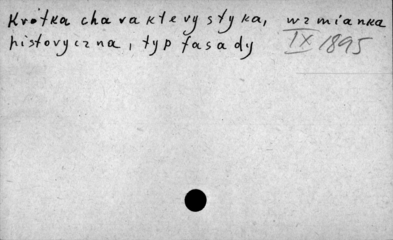 Krótka charakterystyka, wzmianka
historyczna, typ fasady
IX 1895